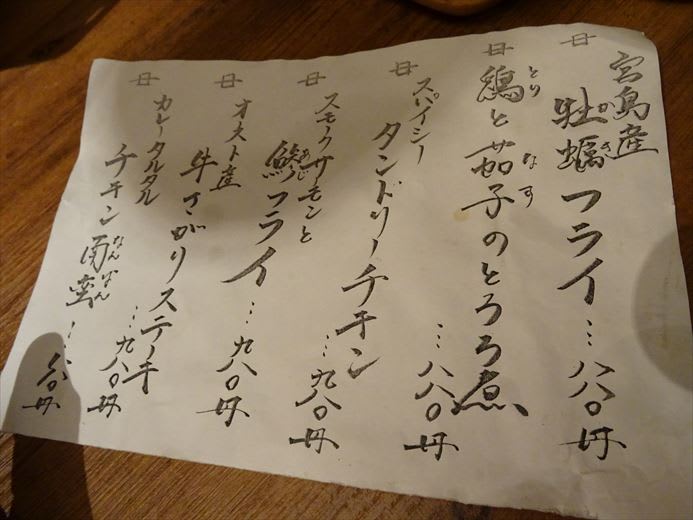 宮島産
牡蠣フライ…八八〇円
かき
鶏と茄子のとろろ煮
とり なす
…八八〇円
スパイシー
タンドリーチキン
…九八〇円
スモークサモンと
鯵フライ…九八〇円
あじ
オスト産
牛さがりステーキ
…九八〇円
カレータルタル
チキン南蛮…
なんばん